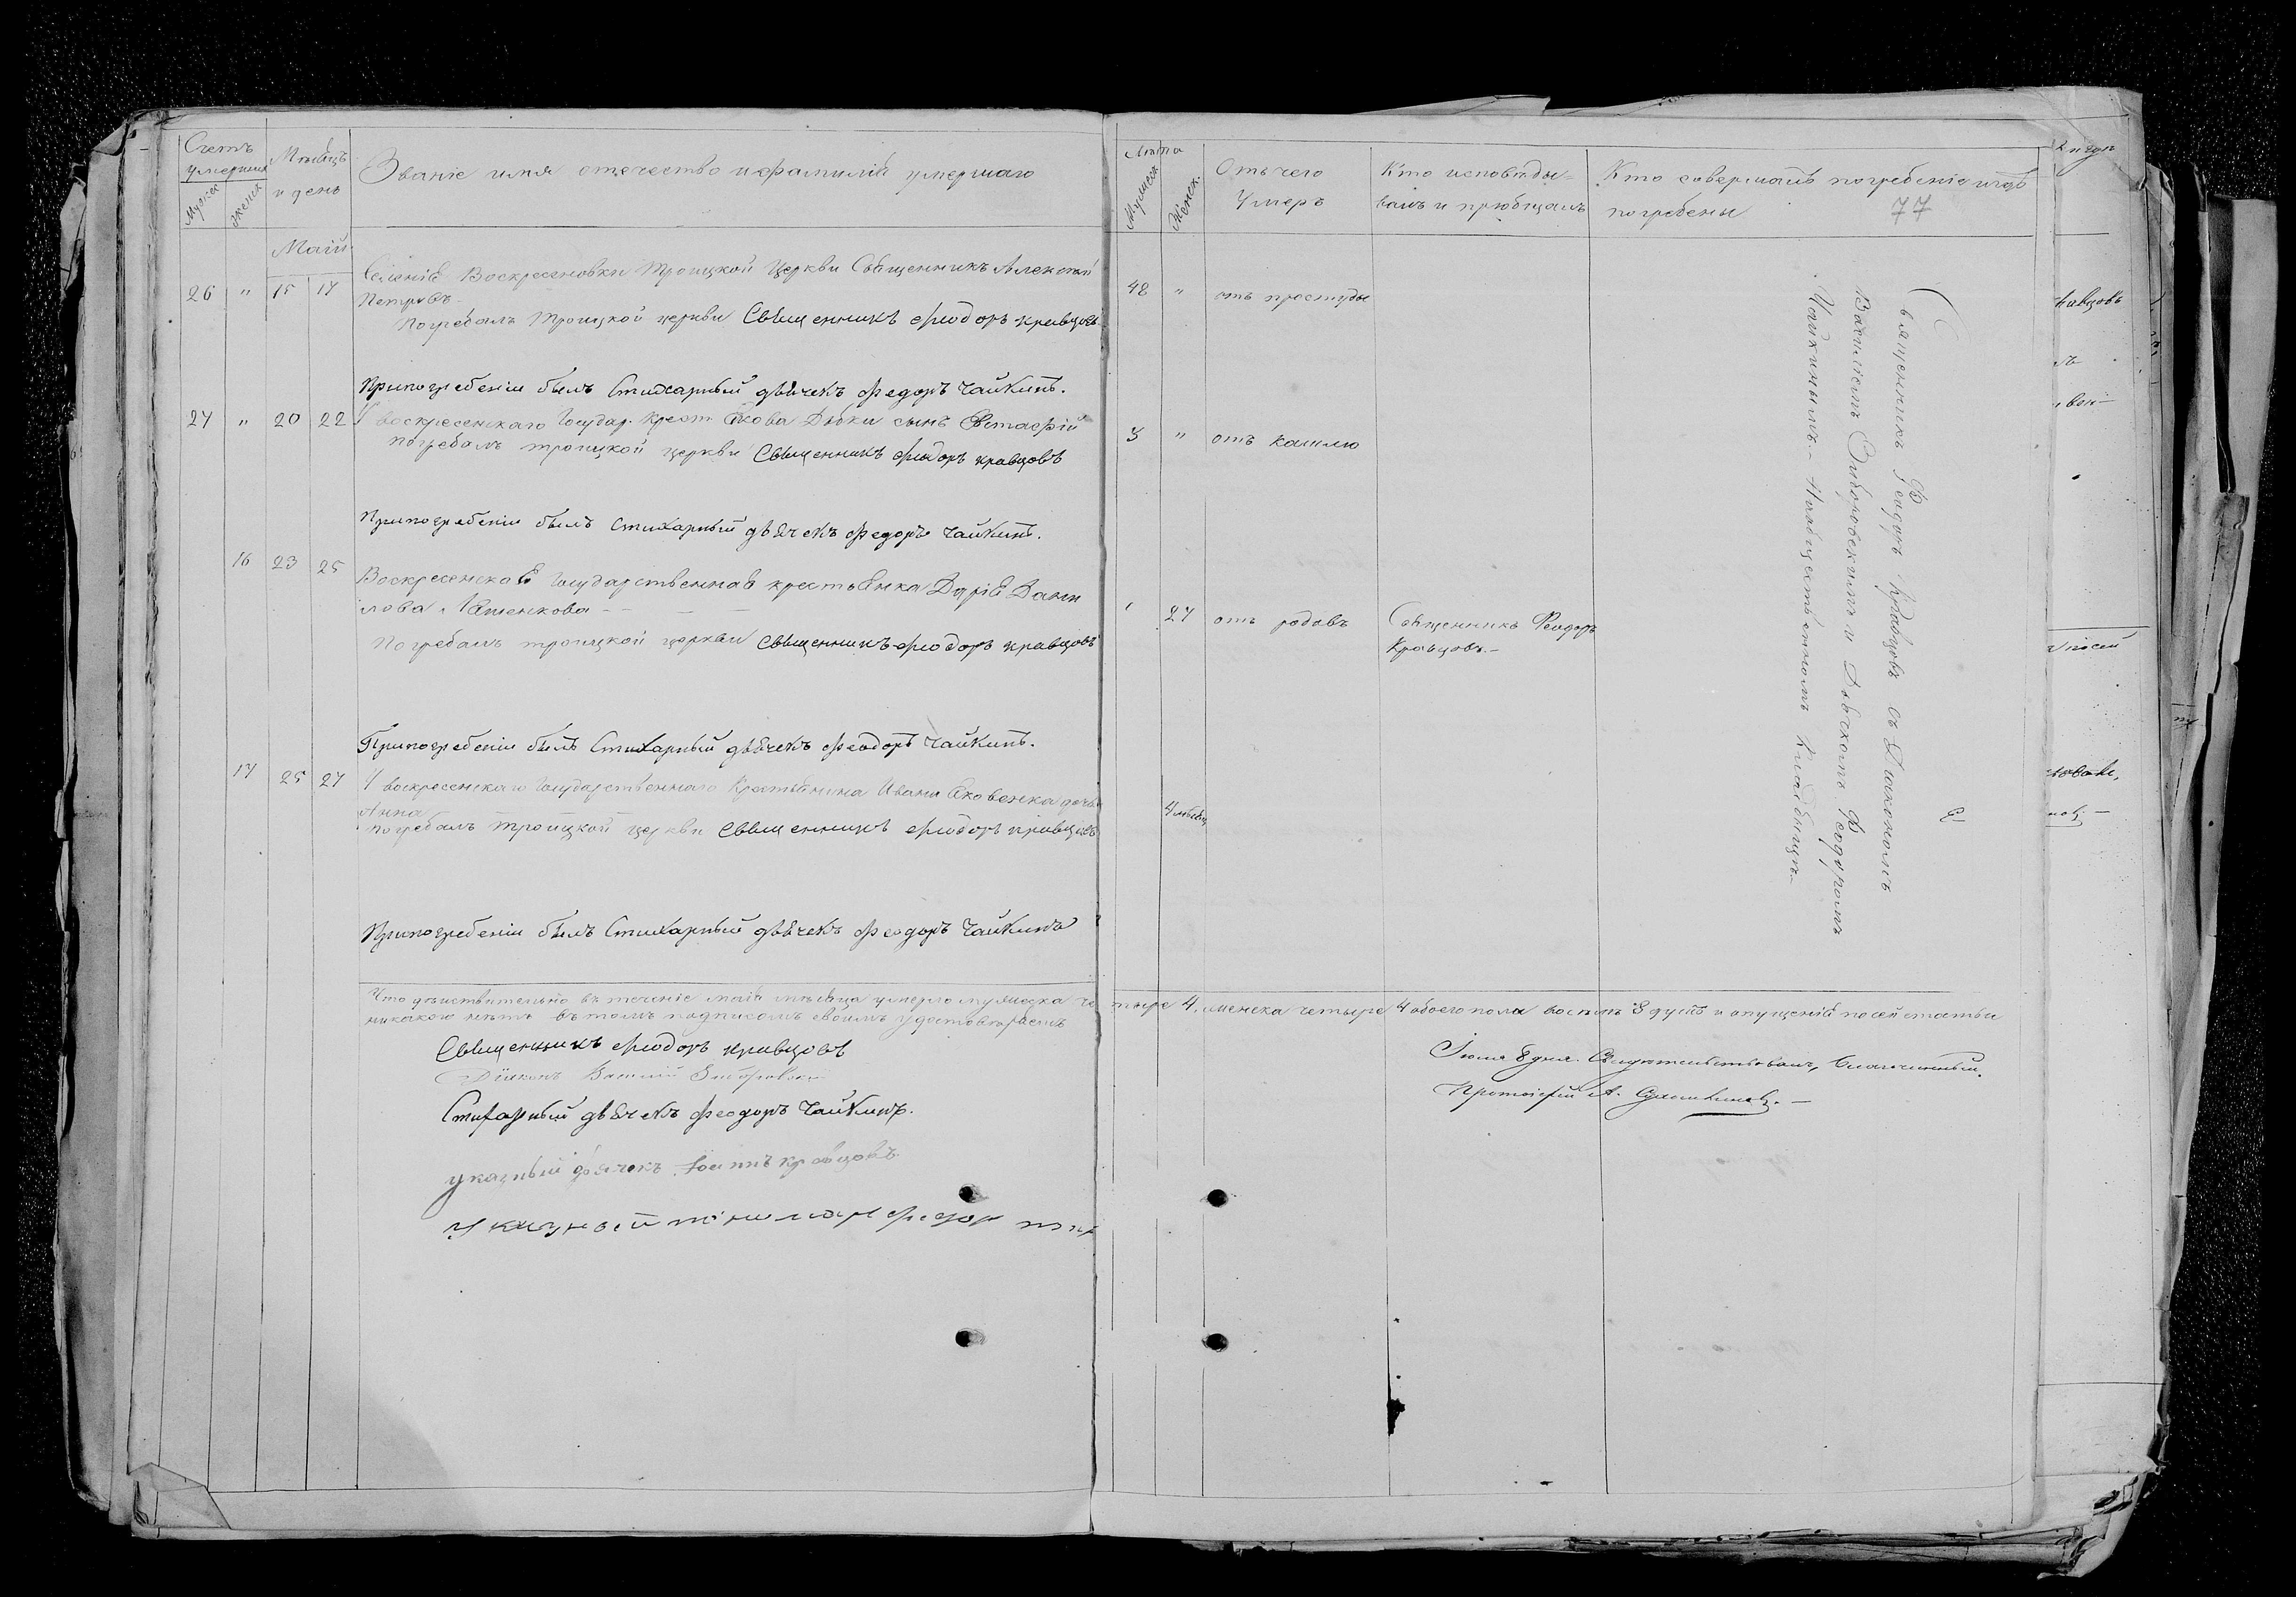 Счетъ умершихъ
Мужеск
женск
Мѣсяцъ и день
Званіе имя отечество и фамилія умершаго
Лѣта
Мужеск
Женск.
Отъ чего Умеръ
Кто исповѣды= валъ и пріобщалъ
Кто совершалъ погребеніе и гдѣ погребены
77
Май
26 " 15 17
Селенія Воскресеновки Троицкой Церкви Священникъ Алексѣй
Петровъ
48 " отъ простуды
Погребалъ Троицкой церкви Священникъ Феодоръ Кравцовъ
При погребеніи былъ Стихарный дьячекъ Федоръ Чайкинъ.
27 " 20 22
У воскресенскаго Государ. крест Якова Дюки сынъ Евстафій
3 " отъ кашлю
погребалъ троицкой церкви Священникъ Феодоръ Кравцовъ
При погребеніи былъ Стихарный дьячекъ Федоръ Чайкинъ.
16 23 25
Воскресенская Государственная крестьянка Дарія Дани
лова
" 27 отъ родовъ
Священникъ Феодоръ
Кравцовъ.—
Погребалъ троицкой церкви Священникъ Феодоръ Кравцовъ
При погребеніи былъ Стихарный дьячекъ Феодоръ Чайкинъ.
17 25 27
У воскресенскаго Государственнаго Крестьянина Ивана Яковенка дочь
Анна
4 мѣсяц
Погребалъ Троицкой церкви Священникъ Феодоръ Кравцовъ
При погребеніи былъ Стихарный дьячекъ Феодоръ Чайкинъ
Священникъ Феодоръ Кравцовъ съ Діакономъ
Василіемъ Зиборовскимъ и Дьячкомъ Феодоромъ
Чайкинымъ.— На общественномъ Кладбищѣ.—
Что дѣйствительно въ теченіе маія мѣсяца умерло мужеска четыре 4, женска четыре 4 обоего пола восемь 8 душъ и опущенія по сей статьи
никакого нѣтъ въ томъ подписомъ своимъ удостовѣряемъ
Священникъ Феодоръ Кравцовъ
Діаконъ Василій Зиборовскій
Стихарный дьячекъ Феодоръ Чайкинъ.
указный дьячекъ Іоаннъ Кравцовъ
Указной пономарь Федор
Іюля 8 дня. Свидѣтельствовалъ, Благочинный.
Протоіерей А.